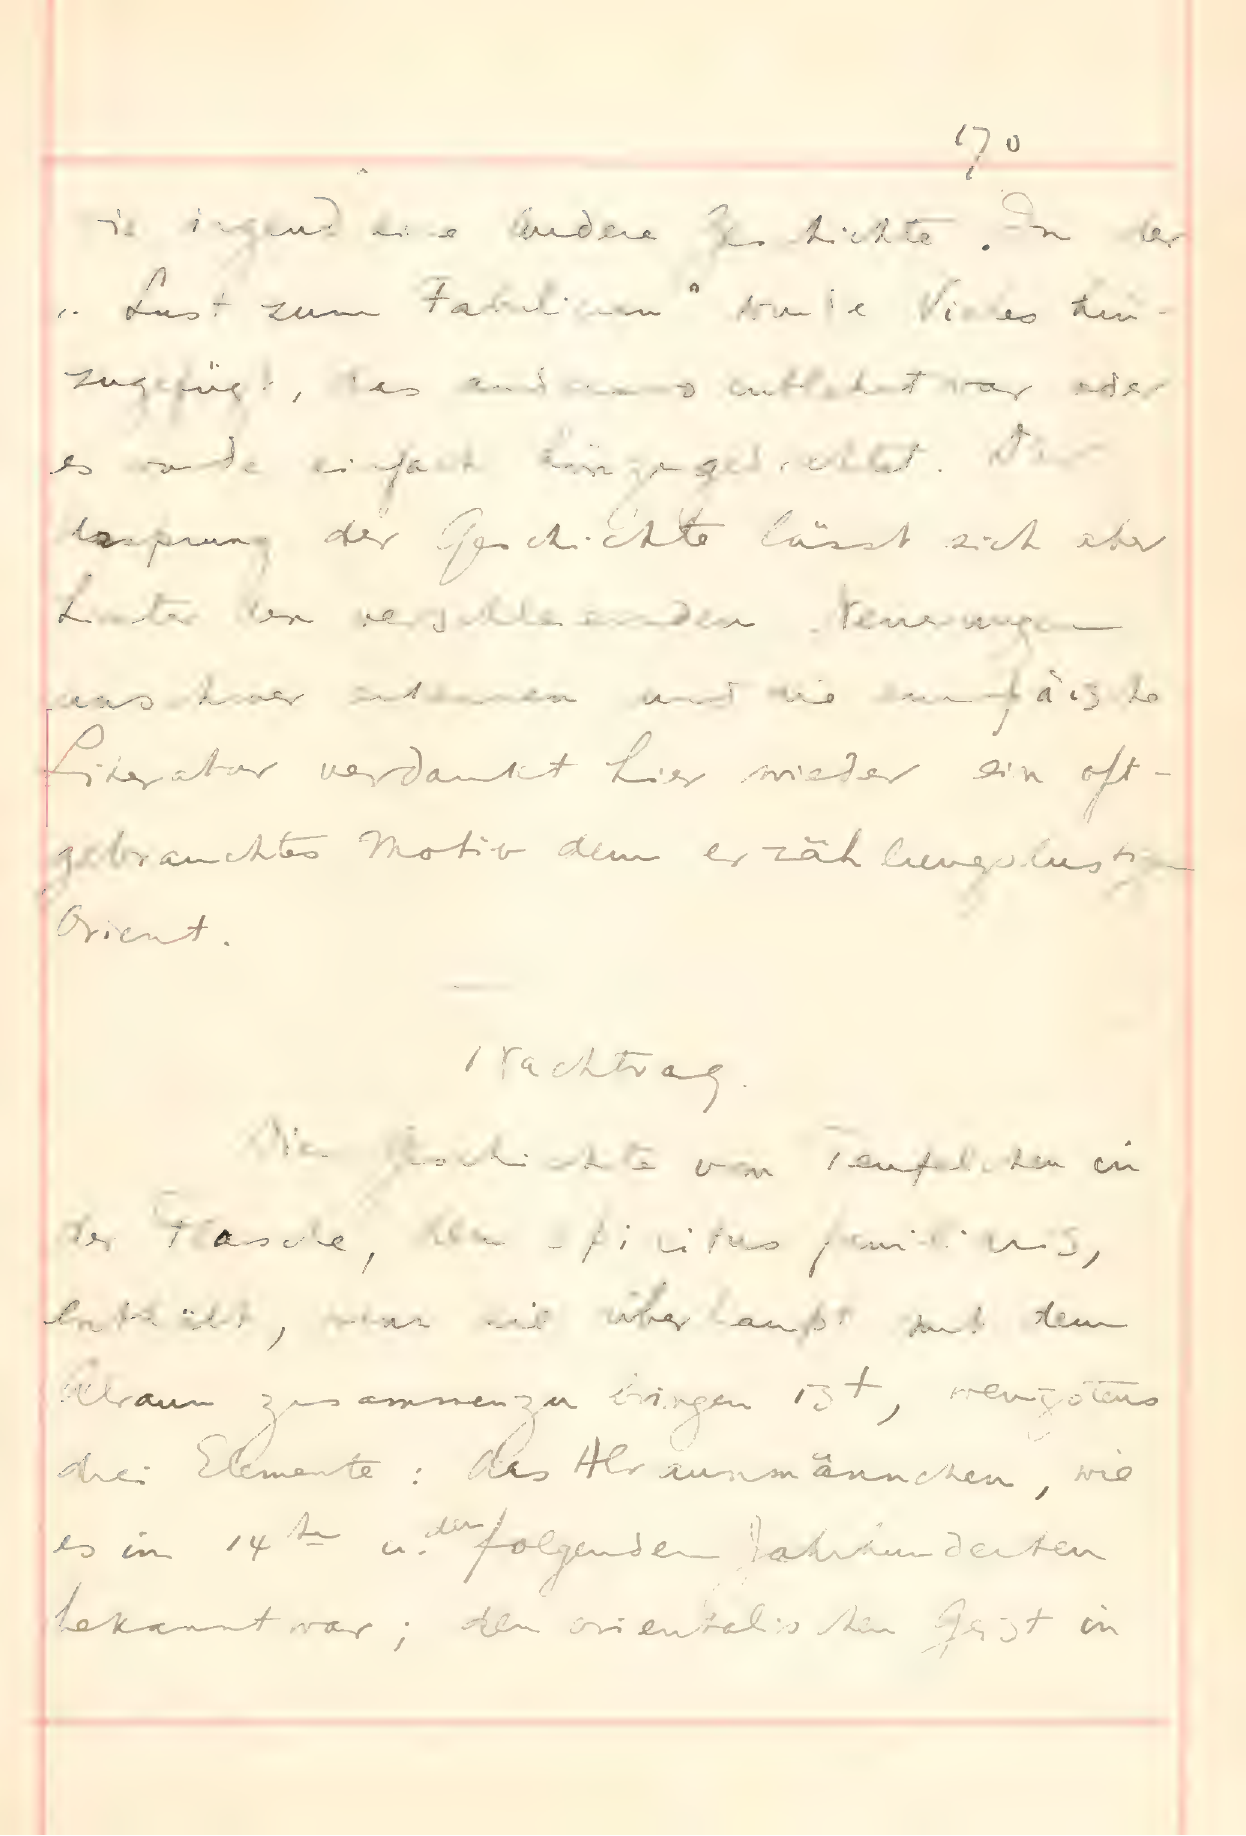 170
wie irgend eine andere Geschichte. In der
„Lust zum Fabulieren" wurde Vieles hin-
zugefügt, das anderswo entlehnt war oder
es wurde einfach hinzugedichtet. Der
Ursprung der Geschichte lässt sich aber
hinter den verschleiernden Neuerungen
unschwer erkennen und die europäische
Literatur verdankt hier wieder ein oft-
gebrauchtes Motiv dem erzählungslustigen
Orient.
Nachtrag.
Die Geschichte vom Teufelchen in
der Flasche, dem spiritus familiaris,
enthält, wenn sie überhaupt mit dem
Alraun zusammenzubringen ist, wenigstens
drei Elemente: das Alraunmännchen, wie
es im 14ten u. den folgenden Jahrhunderten
bekannt war; den orientalischen Geist in